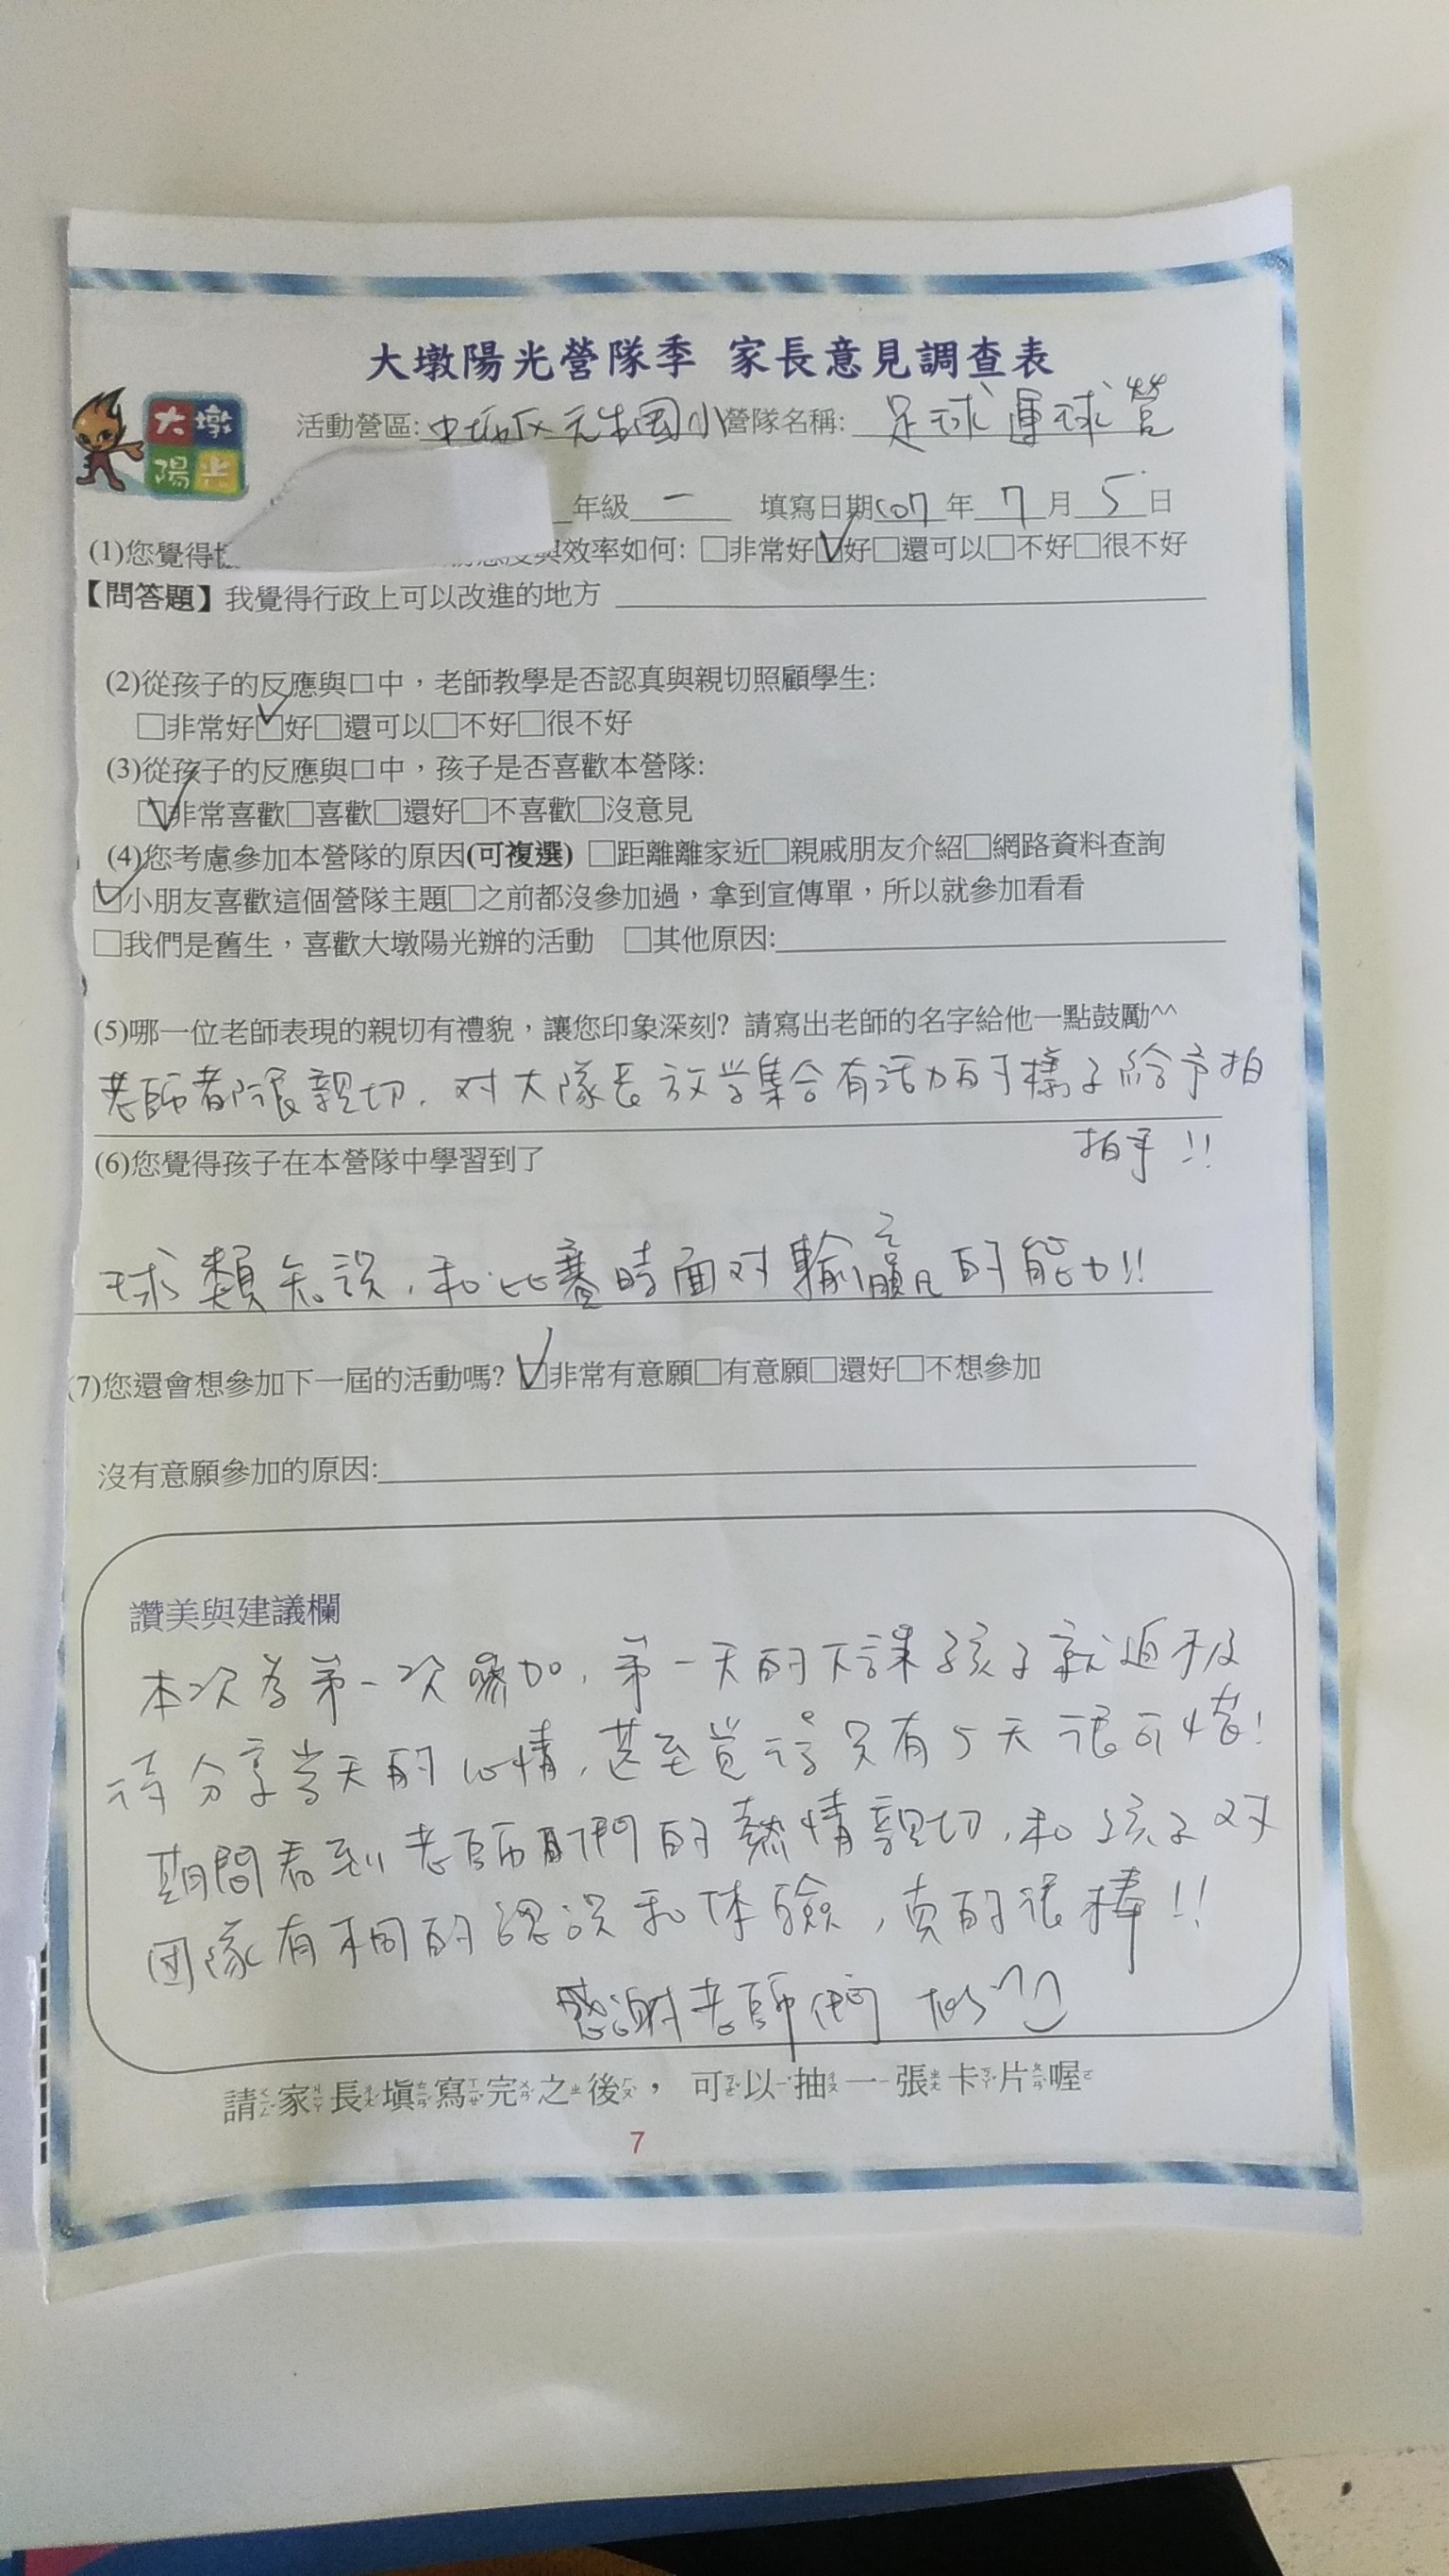 大墩陽光營隊季 家長意見調查表
大墩
陽光
活動營區: 中坜区元生國小 營隊名稱: 足球運球營
年級 一 填寫日期 107 年 7 月 5 日
(1)您覺得 與效率如何: □非常好☑好□還可以□不好□很不好
【問答題】我覺得行政上可以改進的地方
(2)從孩子的反應與口中，老師教學是否認真與親切照顧學生:
□非常好☑好□還可以□不好□很不好
(3)從孩子的反應與口中，孩子是否喜歡本營隊:
☑非常喜歡□喜歡□還好□不喜歡□沒意見
(4)您考慮參加本營隊的原因(可複選) □距離離家近□親戚朋友介紹□網路資料查詢
☑小朋友喜歡這個營隊主題□之前都沒參加過，拿到宣傳單，所以就參加看看
□我們是舊生，喜歡大墩陽光辦的活動 □其他原因:
(5)哪一位老師表現的親切有禮貌，讓您印象深刻? 請寫出老師的名字給他一點鼓勵^^
老師都很親切, 对大隊長放学集合有活力的樣子給予拍
拍手!!
(6)您覺得孩子在本營隊中學習到了
球類知识, 和比賽時面对輸贏的能力!!
(7)您還會想參加下一屆的活動嗎? ☑非常有意願□有意願□還好□不想參加
沒有意願參加的原因:
讚美與建議欄
本次為第一次參加, 第一天的下課孩子就迫不及
待分享当天的心情, 甚至覚得只有5天很可惜!
期間看到老師們的熱情親切, 和孩子对
团隊有不同的認识和体驗, 真的很棒!!
感謝老師們
請家長填寫完之後， 可以抽一張卡片喔
7